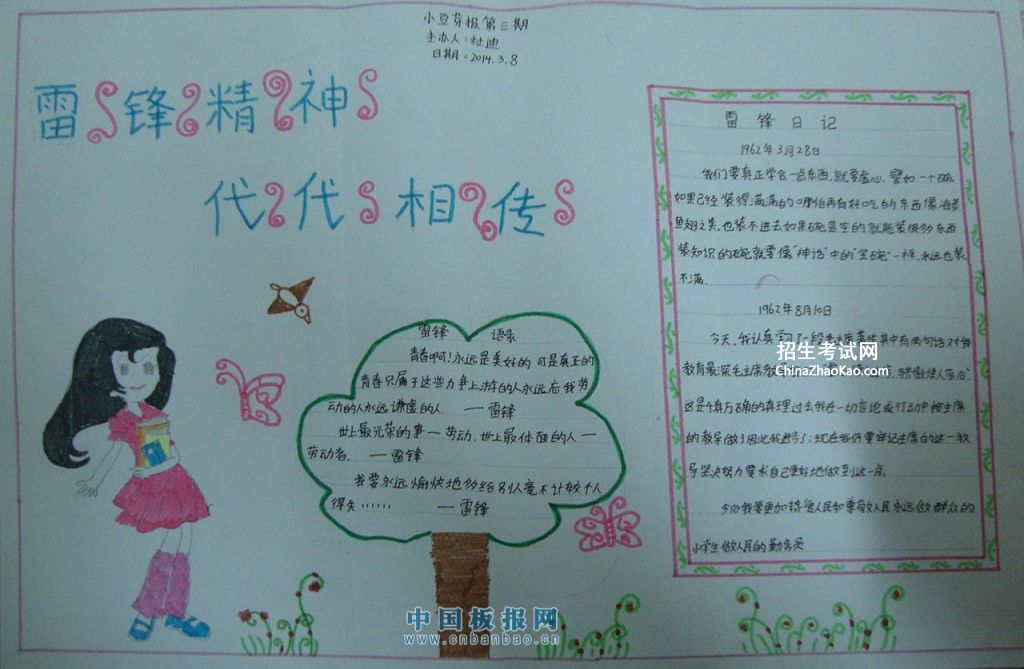 小豆芽报第三期
主办人：杜迪
日期：2014.3.8
雷锋精神
代代相传
雷锋 语录
青春啊！永远是美好的可是真正的
青春只属于这些力争上游的人永远忘我劳
动的人永远谦虚的人 —雷锋
世上最光荣的事—劳动.世上最体面的人—
劳动者. —雷锋
我要永远愉快地多给别人毫不计较个人
得失…… —雷锋
雷锋日记
1962年3月28日
我们要真正学会一点东西,就要虚心.譬如一个碗,
如果已经装得满满的哪怕再有好吃的东西像海参
鱼翅之类,也装不进去如果碗是空的就能装很多东西
装知识的碗就要像"神话"中的"宝碗"一样.永远也装
不满.
1962年8月10日
今天,我认真学习了一段毛主席著作其中有两句话对我
教育最深毛主席教 骄傲使人落后.
这是千真万确的真理过去我在一切言论或行动中按主席
的教导做了因此我进步了;现在我仍要牢记主席的这一教
导坚决努力要求自己更好地做到这一点.
今后我要更加热爱人民和尊敬人民永远做群众的
小学生做人民的勤务员
招生考试网
ChinaZhaoKao.com
中国板报网
www.cnbanbao.cn